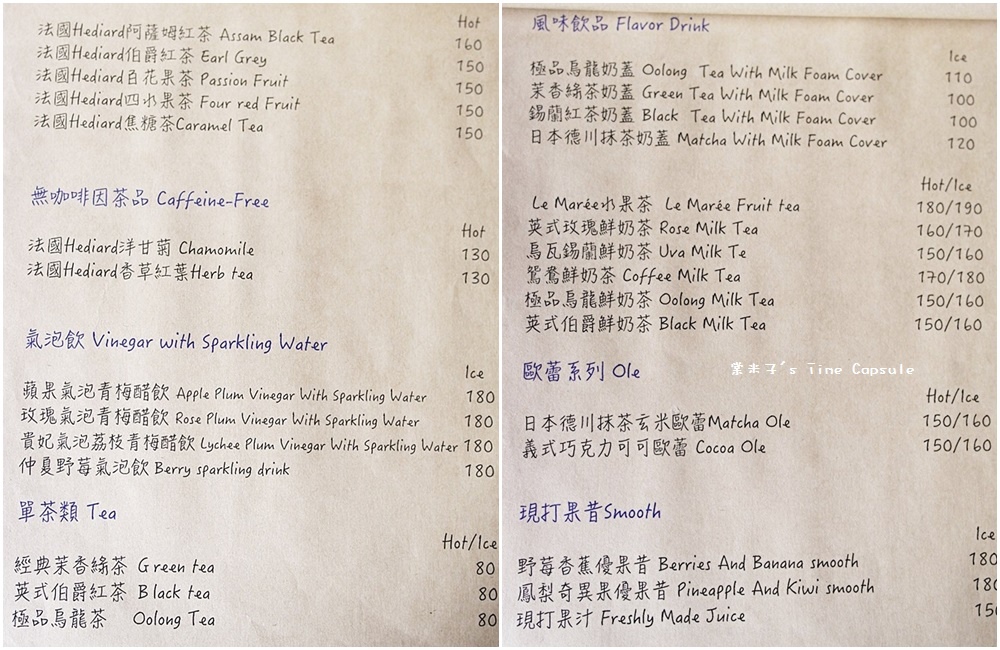 Hot
法國Hediard阿薩姆紅茶 Assam Black Tea 160
法國Hediard伯爵紅茶 Earl Grey 150
法國Hediard百花果茶 Passion Fruit 150
法國Hediard四水果茶 Four red Fruit 150
法國Hediard焦糖茶Caramel Tea 150
無咖啡因茶品 Caffeine-Free
Hot
法國Hediard洋甘菊 Chamomile 130
法國Hediard香草紅葉Herb tea 130
氣泡飲 Vinegar with Sparkling Water
Ice
蘋果氣泡青梅醋飲 Apple Plum Vinegar With Sparkling Water 180
玫瑰氣泡青梅醋飲 Rose Plum Vinegar With Sparkling Water 180
貴妃氣泡荔枝青梅醋飲 Lychee Plum Vinegar With Sparkling Water 180
仲夏野莓氣泡飲 Berry sparkling drink 180
單茶類 Tea
Hot/Ice
經典茉香綠茶 Green tea 80
英式伯爵紅茶 Black tea 80
極品烏龍茶 Oolong Tea 80
風味飲品 Flavor Drink
Ice
極品烏龍奶蓋 Oolong Tea With Milk Foam Cover 110
茉香綠茶奶蓋 Green Tea With Milk Foam Cover 100
錫蘭紅茶奶蓋 Black Tea With Milk Foam Cover 100
日本德川抹茶奶蓋 Matcha With Milk Foam Cover 120
Hot/Ice
Le Marée水果茶 Le Marée Fruit tea 180/190
英式玫瑰鮮奶茶 Rose Milk Tea 160/170
烏瓦錫蘭鮮奶茶 Uva Milk Te 150/160
鴛鴦鮮奶茶 Coffee Milk Tea 170/180
極品烏龍鮮奶茶 Oolong Milk Tea 150/160
英式伯爵鮮奶茶 Black Milk Tea 150/160
歐蕾系列 Ole
葉未子's Time Capsule
Hot/Ice
日本德川抹茶玄米歐蕾Matcha Ole 150/160
義式巧克力可可歐蕾 Cocoa Ole 150/160
現打果昔Smooth
Ice
野莓香蕉優果昔 Berries And Banana smooth 180
鳳梨奇異果優果昔 Pineapple And Kiwi smooth 180
現打果汁 Freshly Made Juice 150